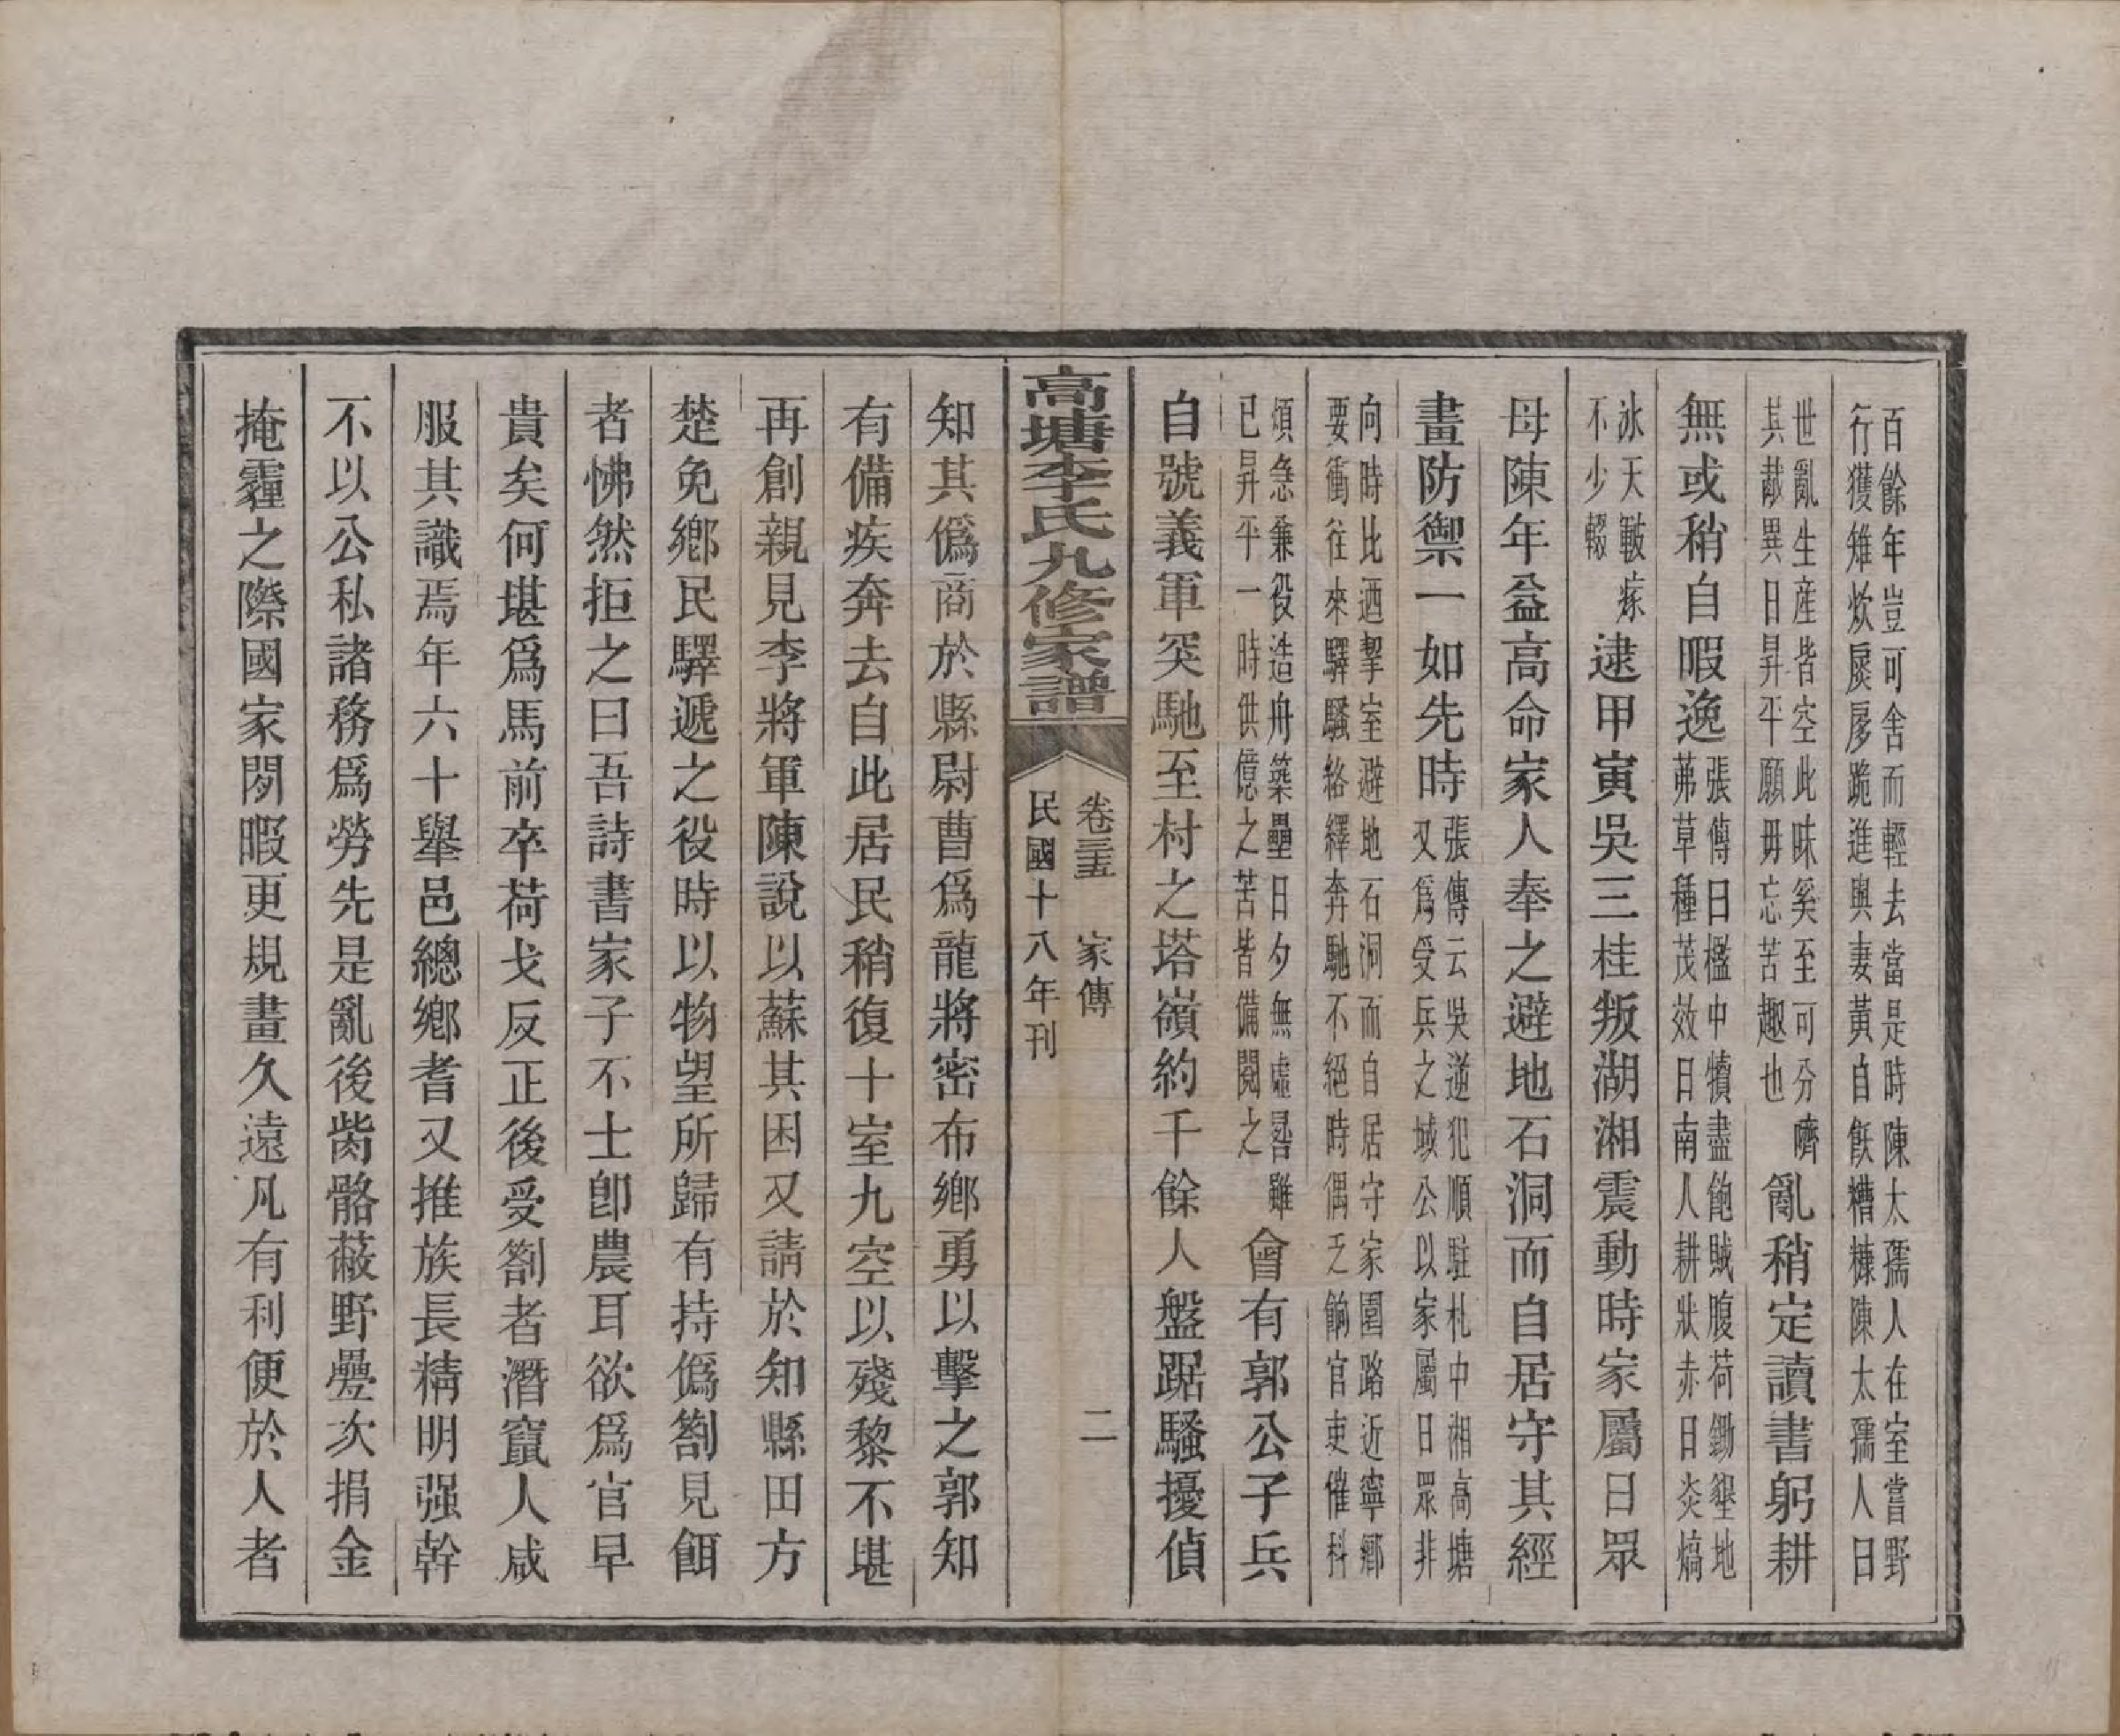 百餘年豈可舍而輕去當是時陳太孺人在室嘗野
行獲雉炊扊扅跪進與妻黃自飫糟糠陳太孺人曰
世亂生產皆空此昧奚至可分嚌
其菽異日昇平願毋忘苦趣也
亂稍定讀書躬耕
無或稍自暇逸
張傳曰檻中犢盡飽賊腹荷鋤墾地
茀草種茂效日南人耕狀赤日炎熇
冰天皸瘃
不少輟
逮甲寅吳三桂叛湖湘震動時家屬日眾
母陳年益高命家人奉之避地石洞而自居守其經
畫防禦一如先時
張傳云吳逆犯順駐札中湘高塘
又爲受兵之城公以家屬日眾非
向時比迺挈室避地石洞而自居守家園路近寧鄉
要衝往來驛騷絡繹奔馳不絕時偶乏餉官吏催科
煩急兼役造舟築壘日夕無虛晷雖
已昇平一時供億之苦皆備閱之
會有郭公子兵
自號義軍突馳至村之塔嶺約千餘人盤踞騷擾偵
高塘李氏九修家譜
卷三五　家傳　二
民國十八年刊
知其僞商於縣尉曹爲龍將密布鄉勇以擊之郭知
有備疾奔去自此居民稍復十室九空以殘黎不堪
再創親見李將軍陳說以蘇其困又請於知縣田方
楚免鄉民驛遞之役時以物望所歸有持僞劄見餌
者怫然拒之曰吾詩書家子不士卽農耳欲爲官早
貴矣何堪爲馬前卒荷戈反正後受劄者潛竄人咸
服其識焉年六十舉邑總鄉耆又推族長精明强幹
不以公私諸務爲勞先是亂後胔骼蔽野疊次捐金
掩薶之際國家閒暇更規畫久遠凡有利便於人者